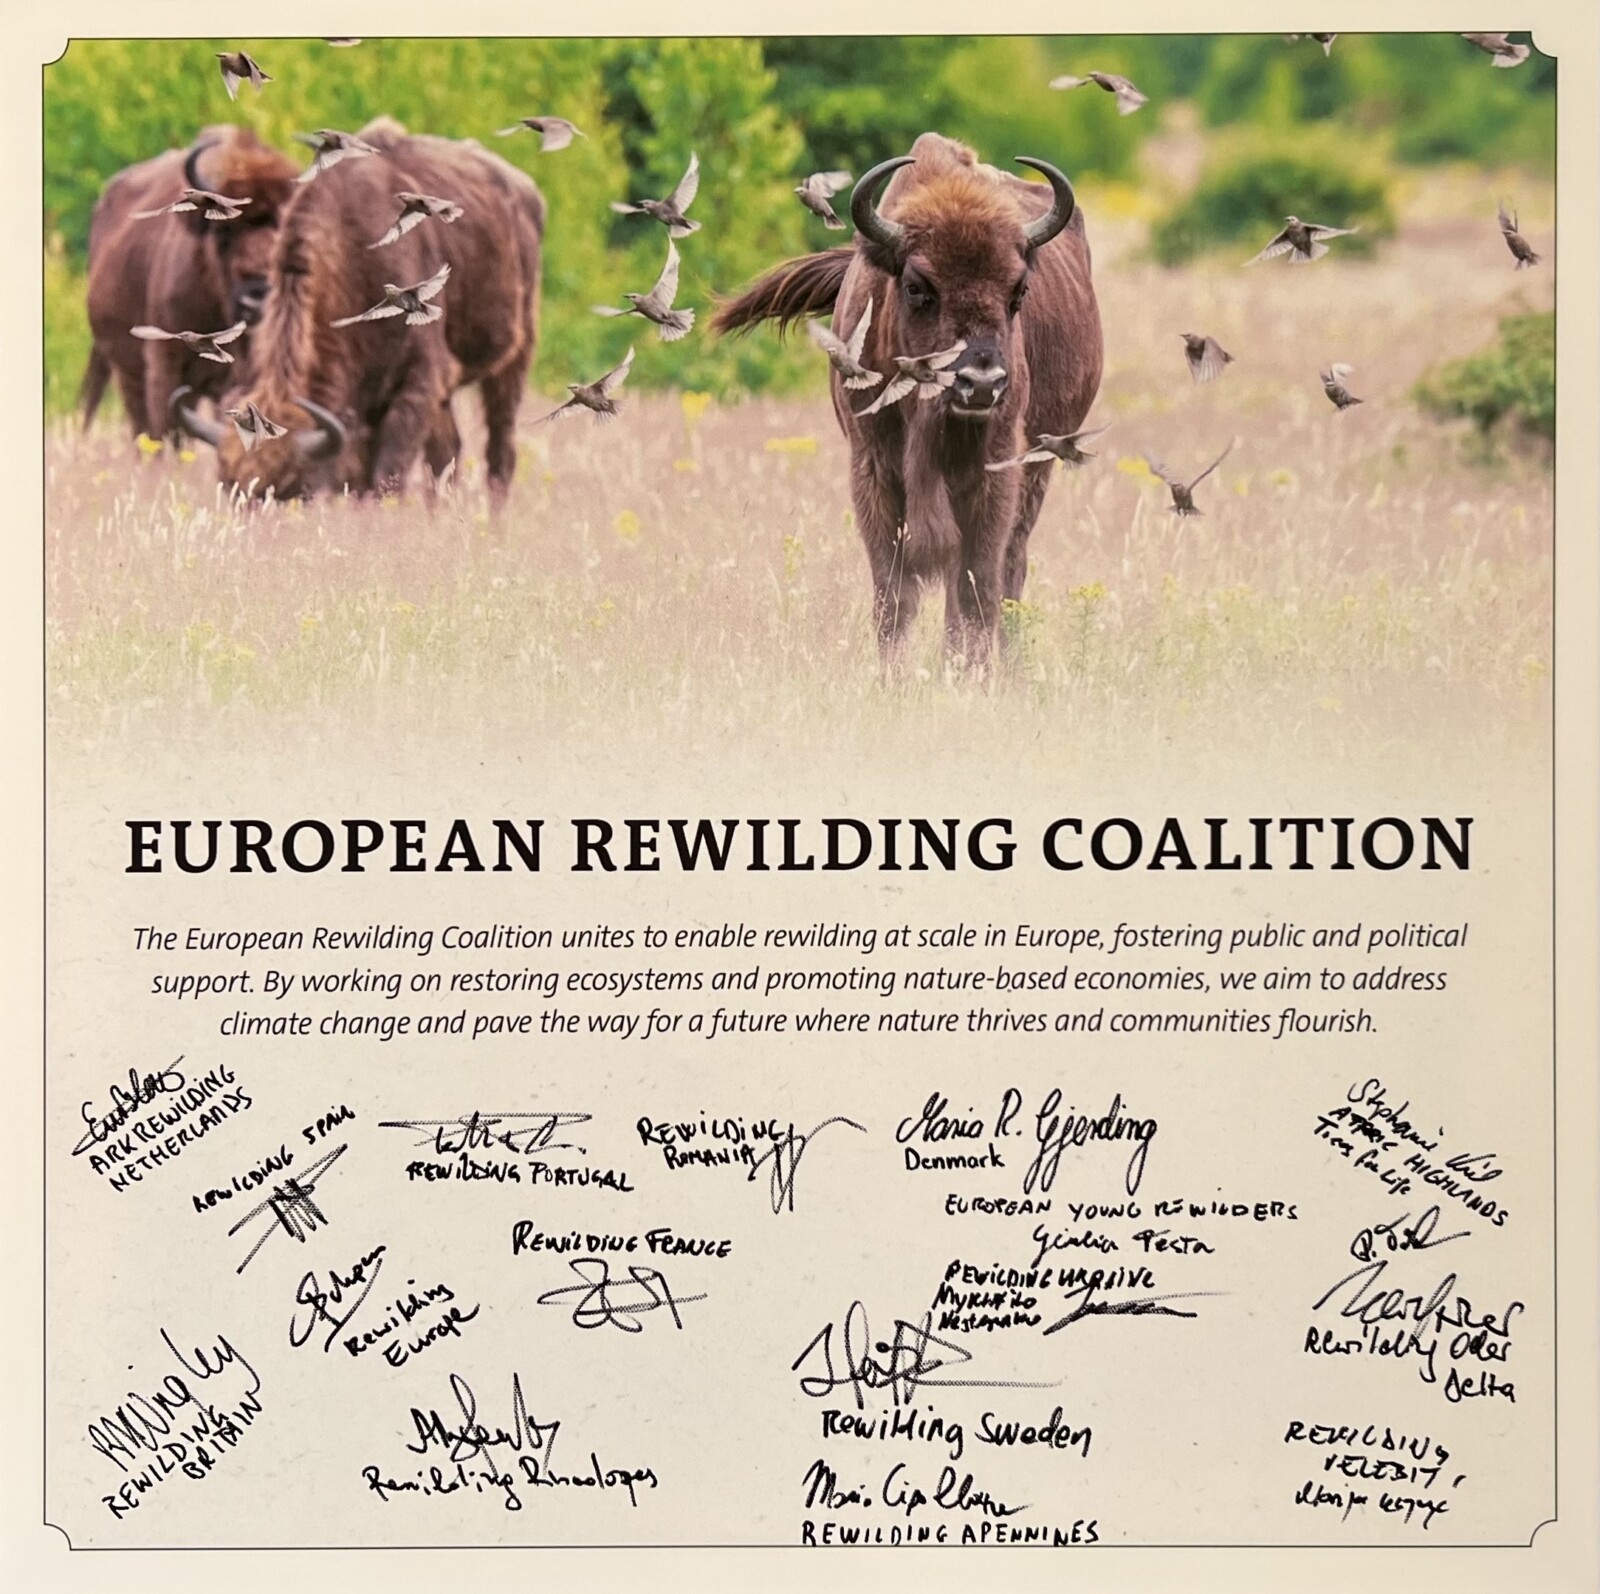 EUROPEAN REWILDING COALITION
The European Rewilding Coalition unites to enable rewilding at scale in Europe, fostering public and political
support. By working on restoring ecosystems and promoting nature-based economies, we aim to address
climate change and pave the way for a future where nature thrives and communities flourish.
ARK REWILDING
NETHERLANDS
REWILDING SPAIN
REWILDING PORTUGAL
REWILDING
ROMANIA
Maria R. Gjerding
Denmark
Stephanie Kiel
HIGHLANDS
Trees for Life
EUROPEAN YOUNG REWILDERS
Giulia Testa
REWILDING FRANCE
REWILDING UKRAINE
Mykhailo
Rewilding
Europe
Rewilding Oder
Delta
REWILDING
BRITAIN
Rewilding Sweden
Rewilding Rhodopes
REWILDING
VELEBIT,
REWILDING APENNINES